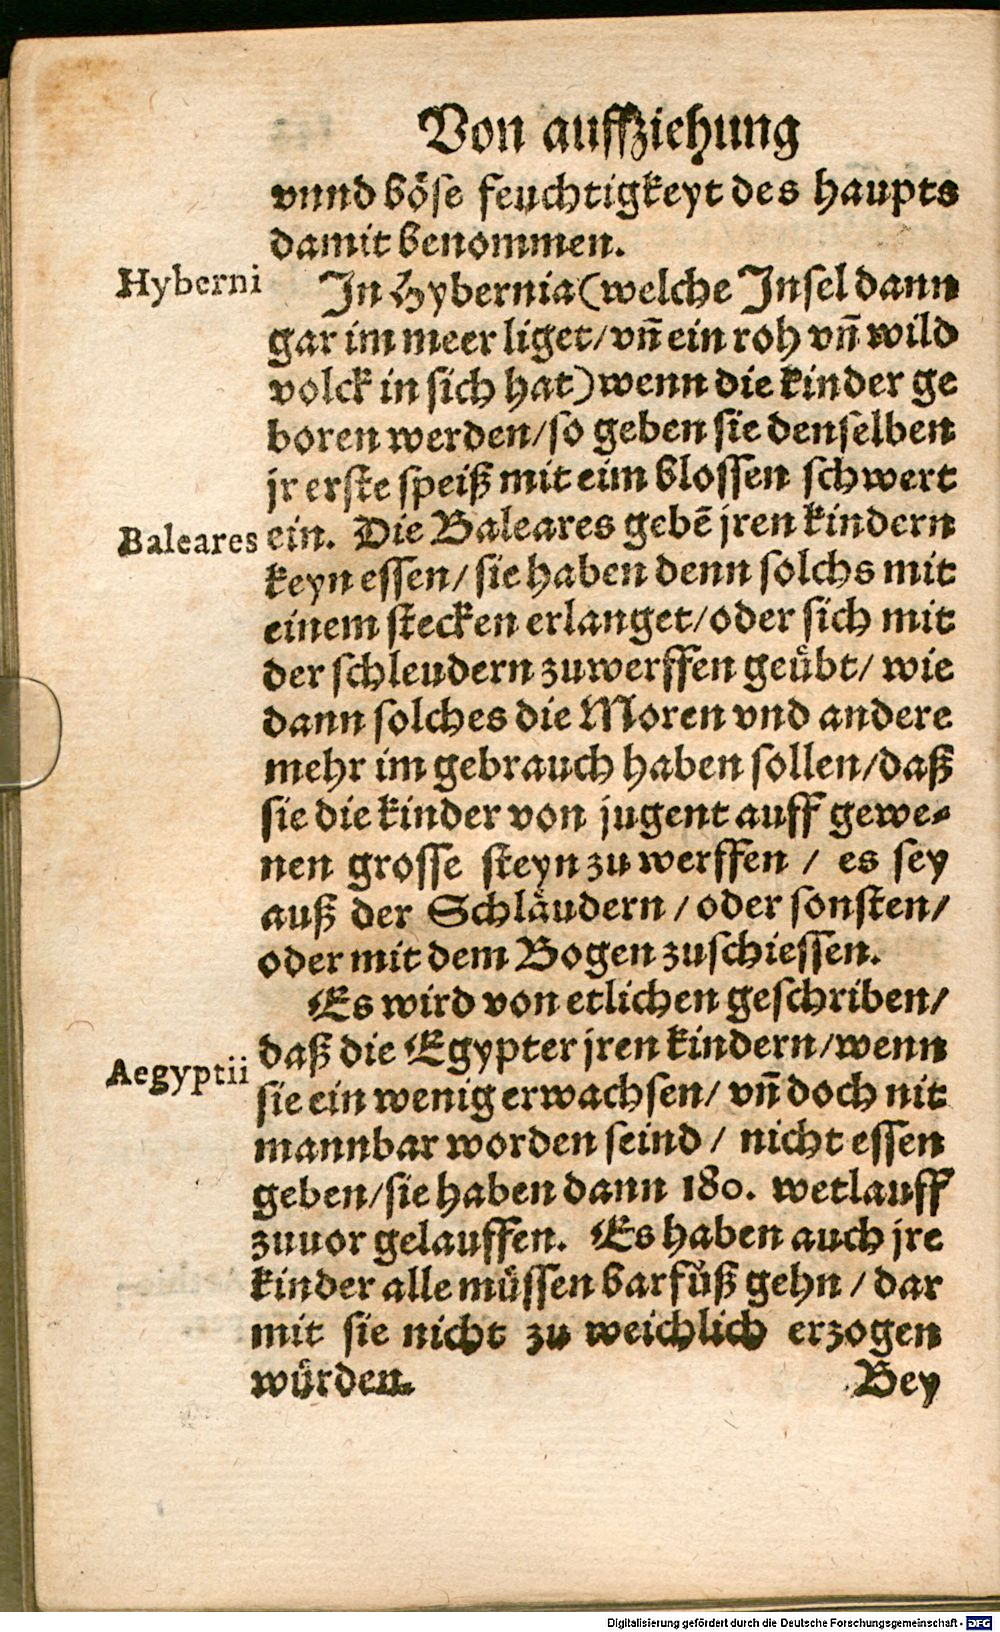 Von auffziehung
vnnd böse feuchtigkeyt des haupts
damit benommen.
Hyberni
In Hybernia (welche Insel dann
gar im meer liget/ vñ ein roh vñ wild
volck in sich hat) wenn die kinder ge
boren werden/ so geben sie denselben
jr erste speiß mit eim blossen schwert
Baleares
ein. Die Baleares gebẽ jren kindern
keyn essen/ sie haben denn solchs mit
einem stecken erlanget/ oder sich mit
der schleudern zuwerffen geübt/ wie
dann solches die Moren vnd andere
mehr im gebrauch haben sollen/ daß
sie die kinder von jugent auff gewe-
nen grosse steyn zu werffen / es sey
auß der Schläudern / oder sonsten/
oder mit dem Bogen zuschiessen.
Es wird von etlichen geschriben/
Aegyptii
daß die Egypter jren kindern/ wenn
sie ein wenig erwachsen/ vñ doch nit
mannbar worden seind / nicht essen
geben/ sie haben dann 180. wetlauff
zuuor gelauffen. Es haben auch jre
kinder alle müssen barfüß gehn / dar
mit sie nicht zu weichlich erzogen
würden. Bey
Digitalisierung gefördert durch die Deutsche Forschungsgemeinschaft - DFG